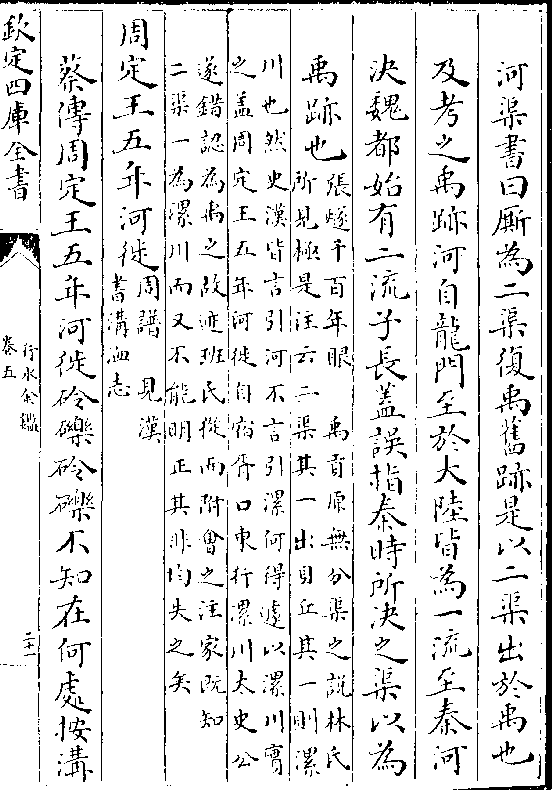 河渠書曰厮為二渠復禹舊跡是以二渠出於禹也
及考之禹跡河自龍門至於大陸皆為一流至秦河
決魏都始有二流子長蓋誤指秦時所決之渠以為
禹跡也
張燧千百年眼　禹貢原無分渠之說林氏
所見極是注云二渠其一出貝丘其一則漯
川也然史漢皆言引河不言引漯何得遽以漯川實
之蓋周定王五年河徙自宿胥口東行漯川太史公
遂錯認為禹之故迹班氏從而附會之注家既知
二渠一為漯川而又不能明正其非均失之矣
周定王五年河徙
周譜　見漢
書溝洫志
蔡傳周定王五年河徙砱礫砱礫不知在何處按溝
欽定四庫全書
行水金鑑
卷五
二十二